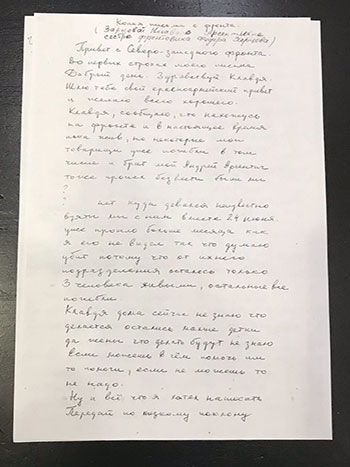 Копия письма с фронта.
сестре фронтовика
Привет с Северо-западного фронта.
Во первых строках моего письма
Добрый день. Здравствуй Клавдя.
Шлю тебе свой красноармейский привет
и желаю всего хорошего.
Клавдя, сообщаю, что нахожусь
на фронте и в настоящее время
пока жив, но некоторые мои
товарищи уже погибли в том
числе и брат мой Андрей
тоже пропал безвести были мы
?
?
нет куда девался неизвестно
взяты мы с ним вместе 24 июня
уже прошло больше месяца как
я его не видал так что думаю
убит потому что от ихнего
подразделения осталось только
3 человека живыми, остальные все
погибли.
Клавдя дома сейчас не знаю что
делается остались малые детки
да жены что делать будут не знаю
Если можешь в чём помочь им
то помоги, если не можешь то
не надо.
Ну и всё что я хотел написать
Передай по низкому поклону